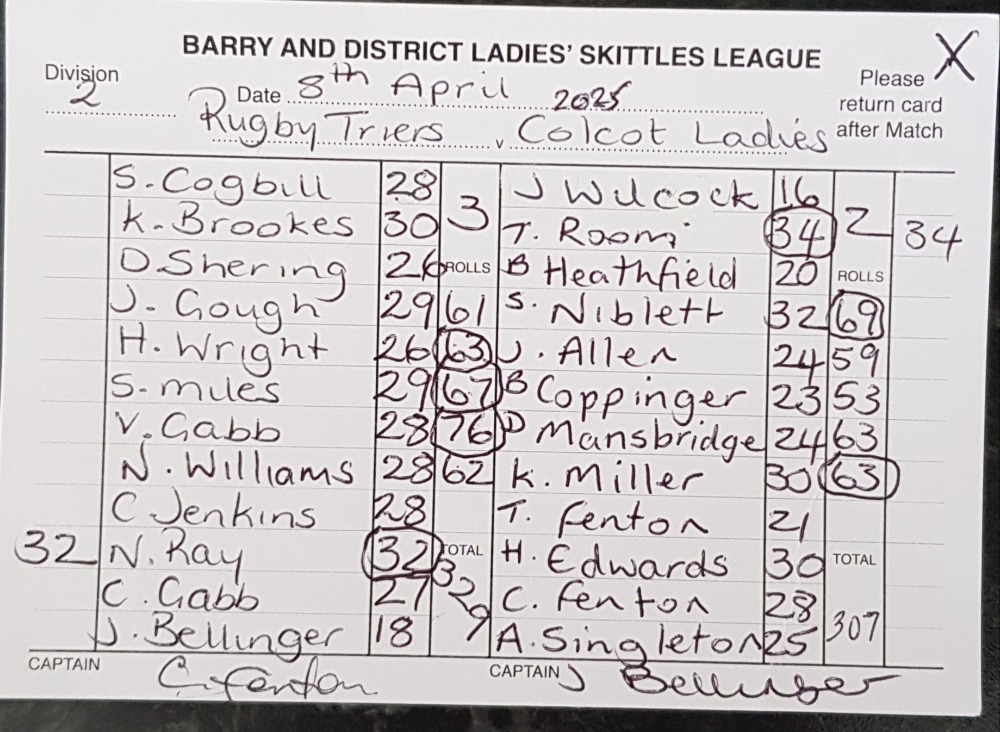 BARRY AND DISTRICT LADIES' SKITTLES LEAGUE X
Division 2 Date 8th April 2025 Please return card after Match
Rugby Triers v Colcot Ladies
S. Cogbill 28 3 J Wilcock 16 2
K. Brookes 30 T. Room 34 34
D. Shering 26 ROLLS B Heathfield 20 ROLLS
J. Gough 29 61 S. Niblett 32 69
H. Wright 26 63 J. Allen 24 59
S. Miles 29 67 B Coppinger 23 53
V. Gabb 28 76 D Mansbridge 24 63
N. Williams 28 62 K. Miller 30 63
C Jenkins 28 T. Fenton 21
32 N. Ray 32 TOTAL H. Edwards 30 TOTAL
C. Gabb 27 329 C. Fenton 28
J. Bellinger 18 A. Singleton 25 307
CAPTAIN C. Fenton CAPTAIN J Bellinger